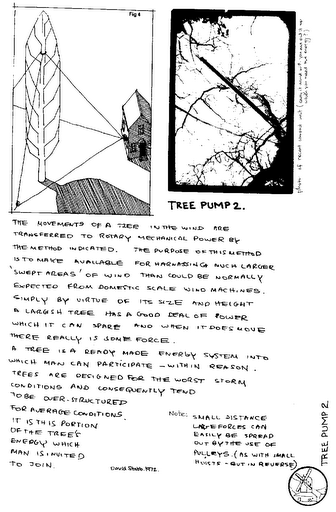 Fig 4
TREE PUMP 2.
THE MOVEMENTS OF A TREE IN THE WIND ARE
TRANSFERRED TO ROTARY MECHANICAL POWER BY
THE METHOD INDICATED. THE PURPOSE OF THIS METHOD
IS TO MAKE AVAILABLE FOR HARNASSING MUCH LARGER
'SWEPT AREAS' OF WIND THAN COULD BE NORMALLY
EXPECTED FROM DOMESTIC SCALE WIND MACHINES.
SIMPLY BY VIRTUE OF ITS SIZE AND HEIGHT
A LARGISH TREE HAS A GOOD DEAL OF POWER
WHICH IT CAN SPARE AND WHEN IT DOES MOVE
THERE REALLY IS SOME FORCE.
A TREE IS A READY MADE ENERGY SYSTEM INTO
WHICH MAN CAN PARTICIPATE - WITHIN REASON.
TREES ARE DESIGNED FOR THE WORST STORM
CONDITIONS AND CONSEQUENTLY TEND
TO BE OVER-STRUCTURED
FOR AVERAGE CONDITIONS.
IT IS THIS PORTION
OF THE TREE'S
ENERGY WHICH
MAN IS INVITED
TO JOIN.
David 1972.
Note: SMALL DISTANCE
LARGE FORCES CAN
EASILY BE SPREAD
OUT BY THE USE OF
PULLEYS. (AS WITH SMALL
HOISTS - BUT IN REVERSE)
TREE PUMP 2